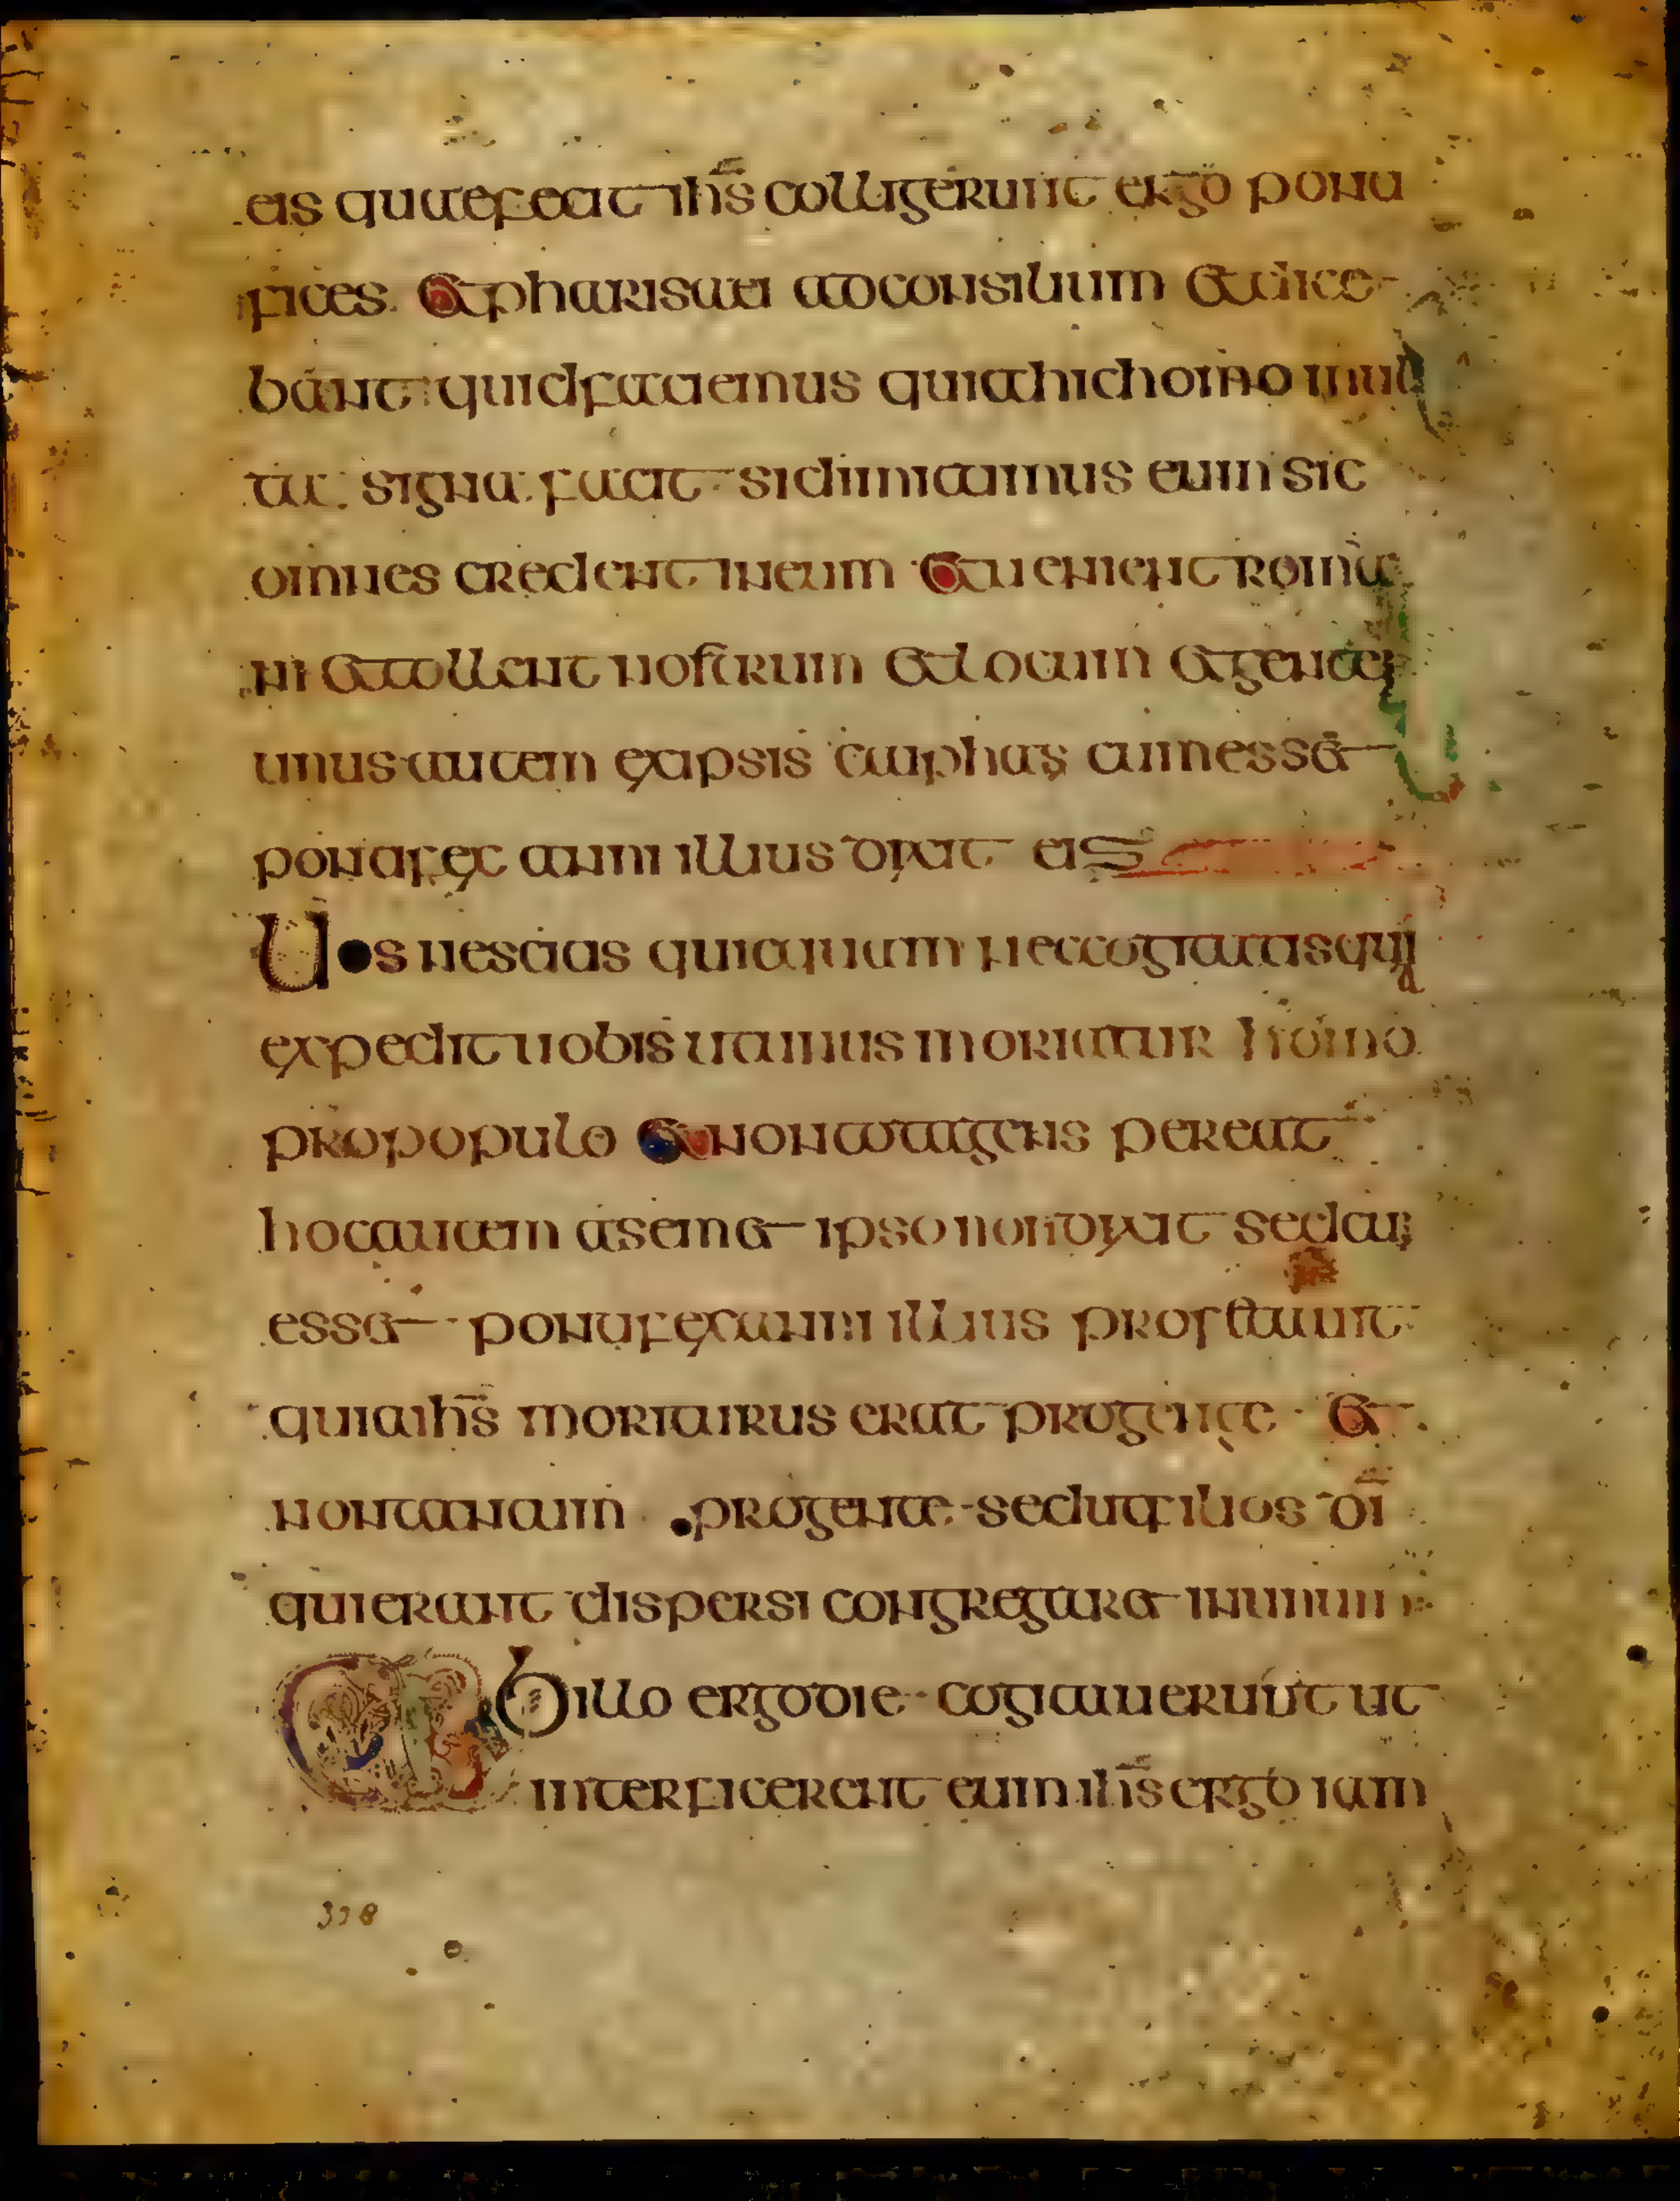 eis quae fecit ihs colligerunt ergo ponti
fices et pharisaei ad consilium et dice
bant quid faciemus quia hic homo mul
ta signa facit si dimitamus eum sic
omnes credent in eum et uenient roma
ni et tollent nostrum et locum et gentem
unus autem ex ipsis caiphas cum esset
pontifex anni illius dixit eis
Uos nescitis quicquam nec cogitatis quia
expedit uobis ut unus moriatur homo
pro populo et non tota gens pereat
hoc autem a semet ipso non dixit sed cum
esset pontifex anni illius profetauit
quia ihs moriturus erat pro gente et
non tantum pro gente sed ut filios di
qui erant dispersi congregaret in unum
Ab illo ergo die cogitauerunt ut
interficerent eum ihs ergo iam